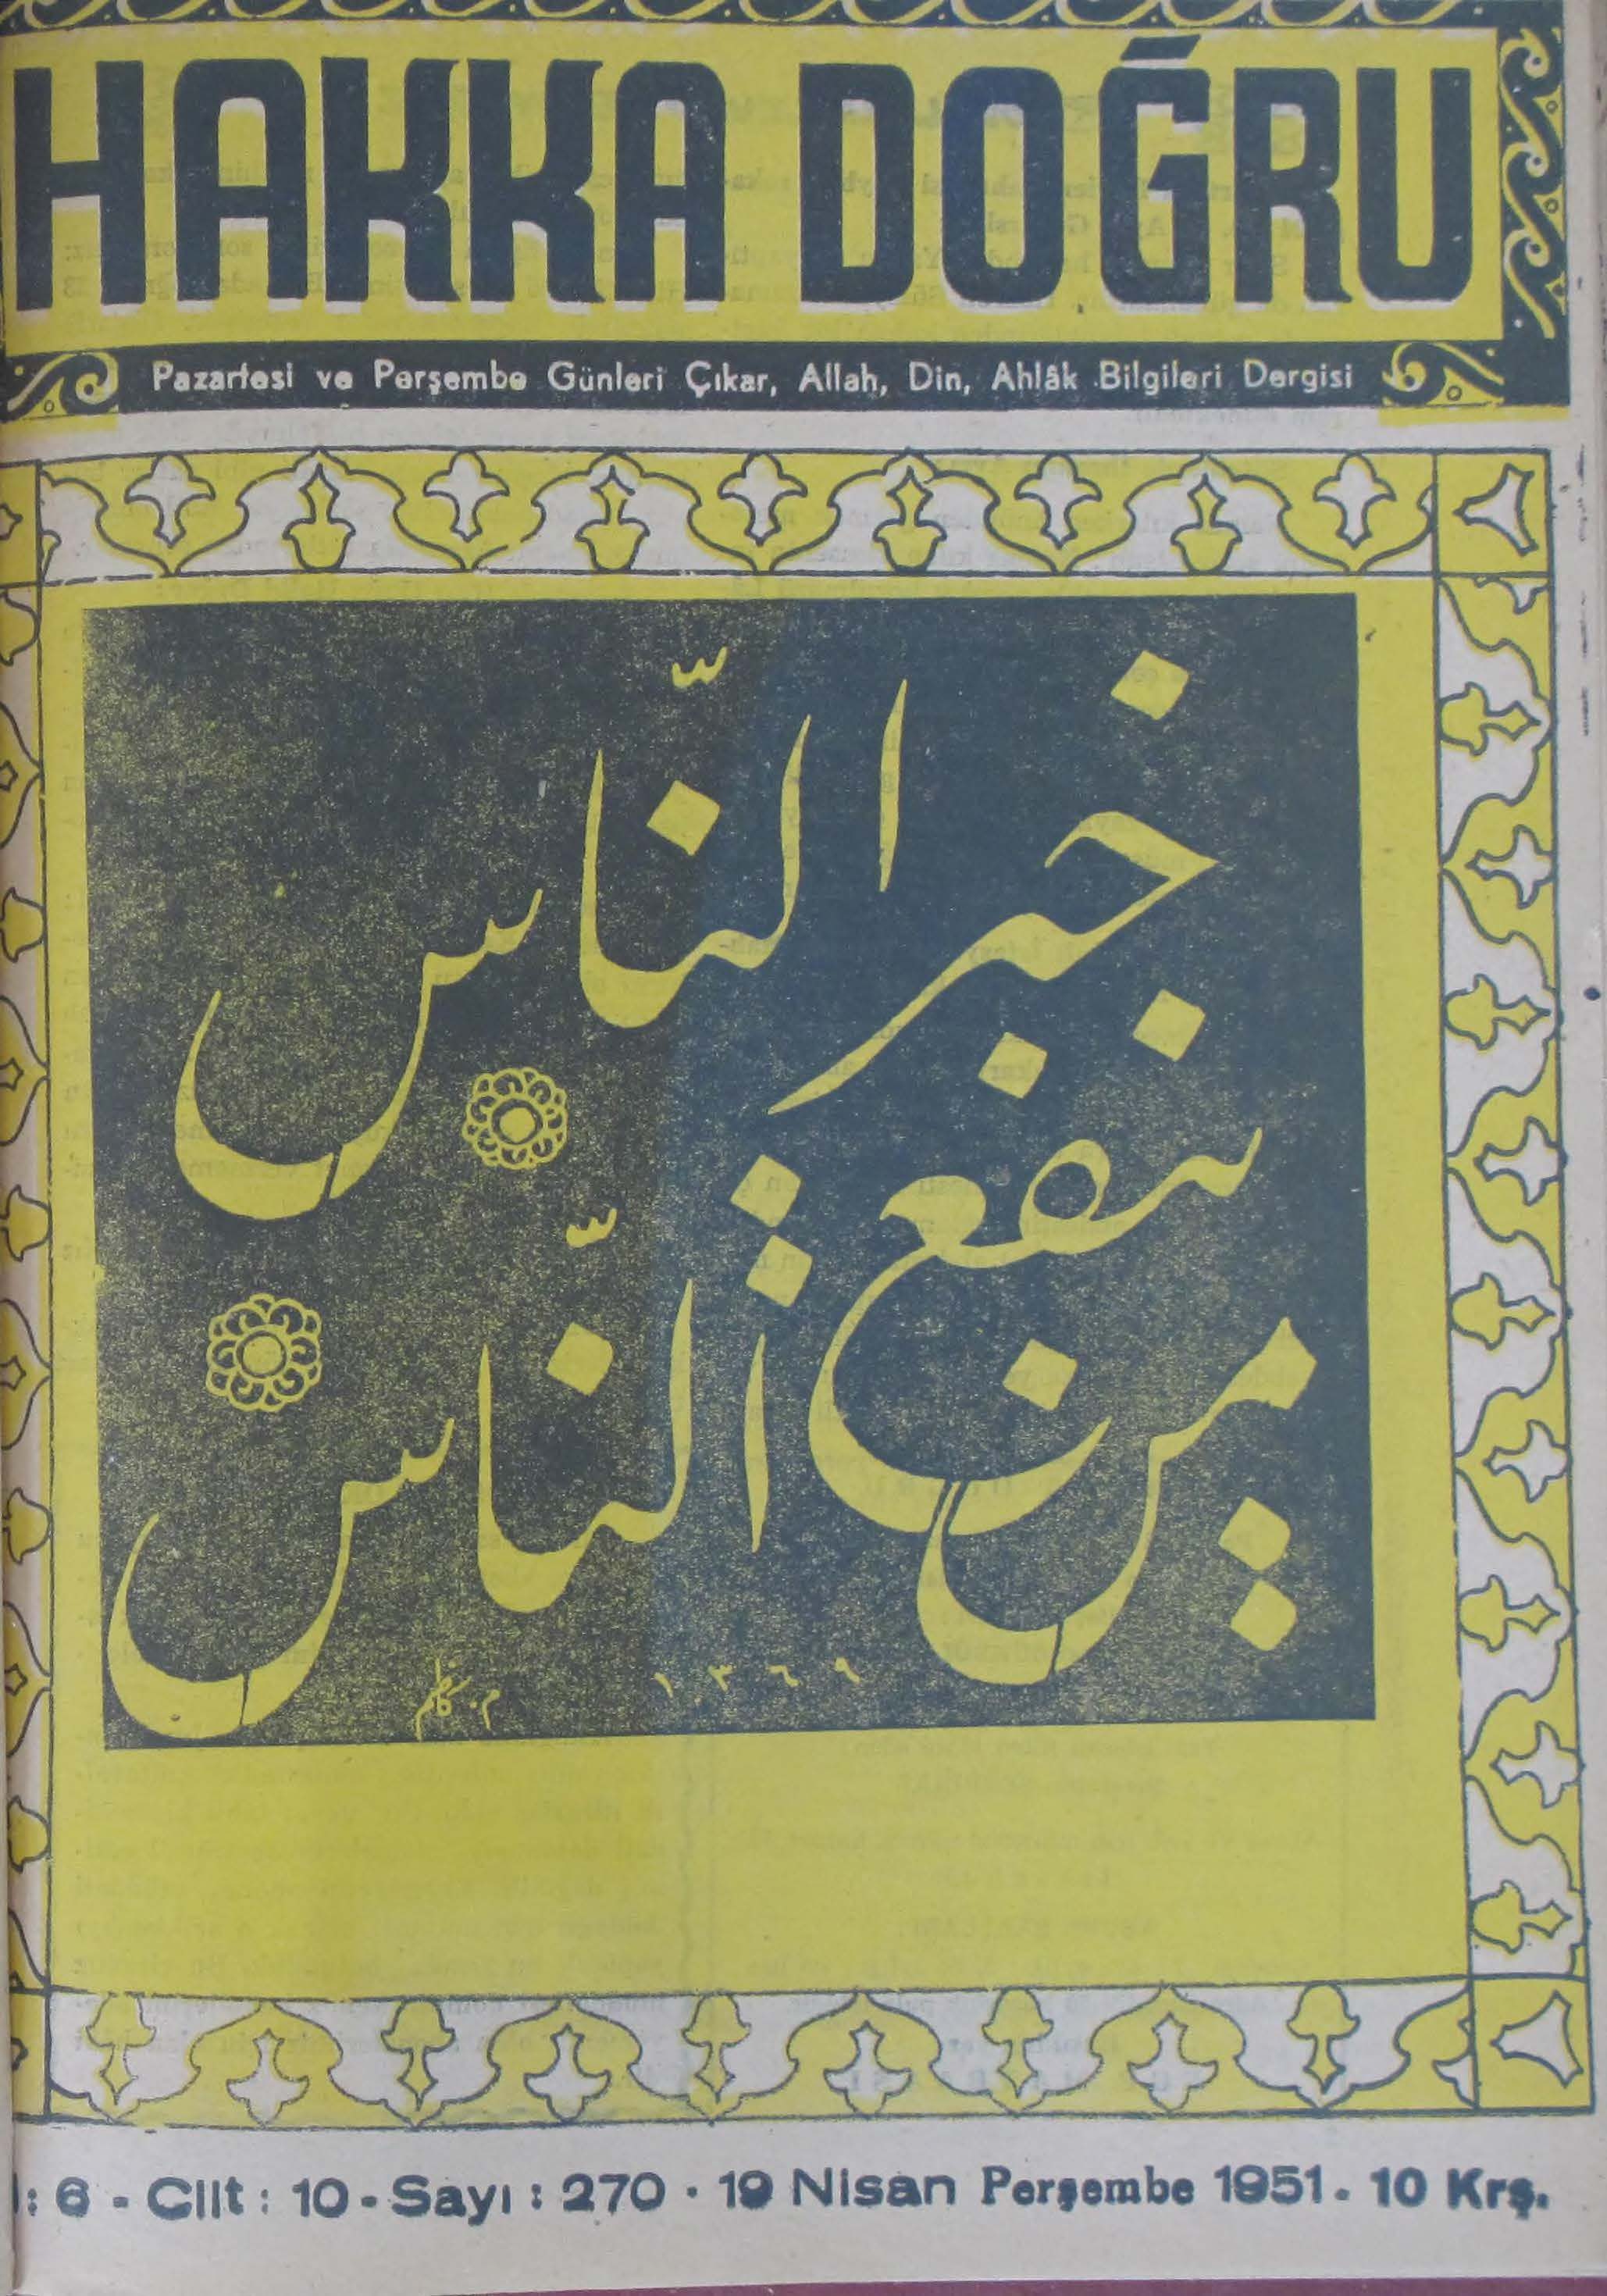 HAKKA DOĞRU
Pazartesi ve Perşembe Günleri Çıkar, Allah, Din, Ahlâk Bilgileri Dergisi
خير النّاس
ينفع
من النّاس
م. كاظم ١٣٦٩
: 6 - Cilt : 10 - Sayı : 270 - 19 Nisan Perşembe 1951. 10 Krş.